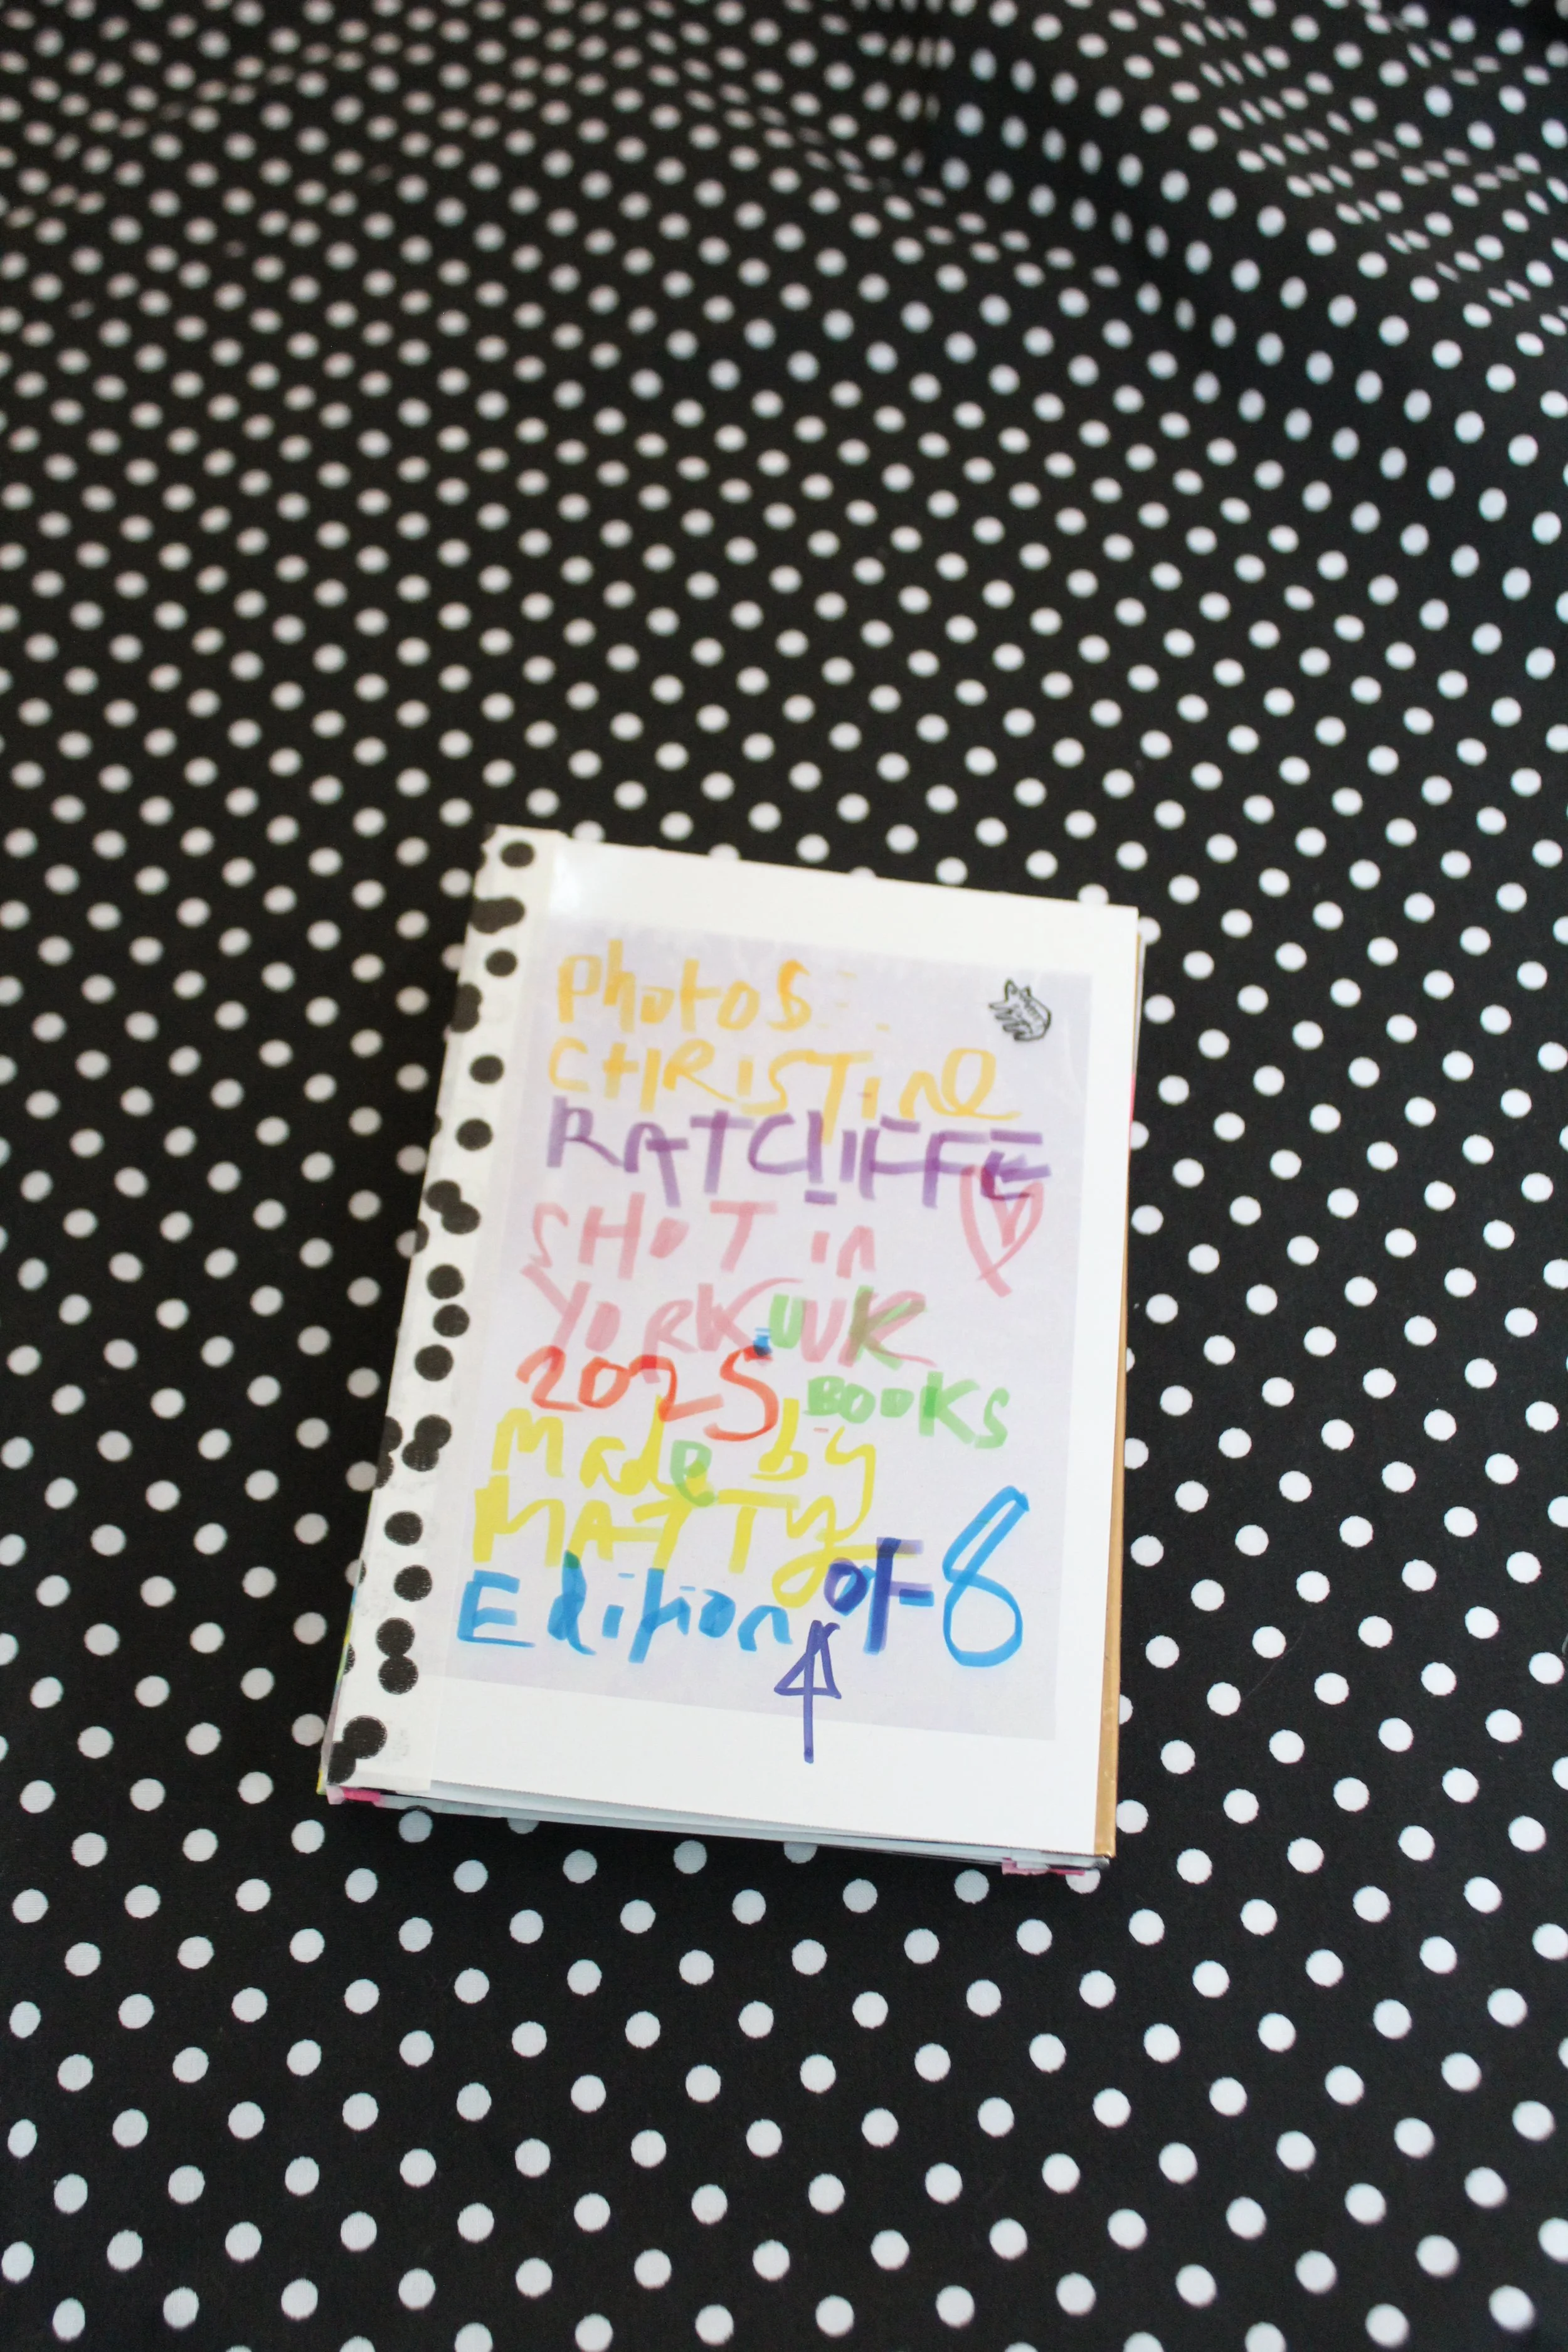 Photos
CHRISTINe
RATCLIFFE
SHOT in
YORK UK
2025 BOOKS
Made by
MATTy
Edition of 8